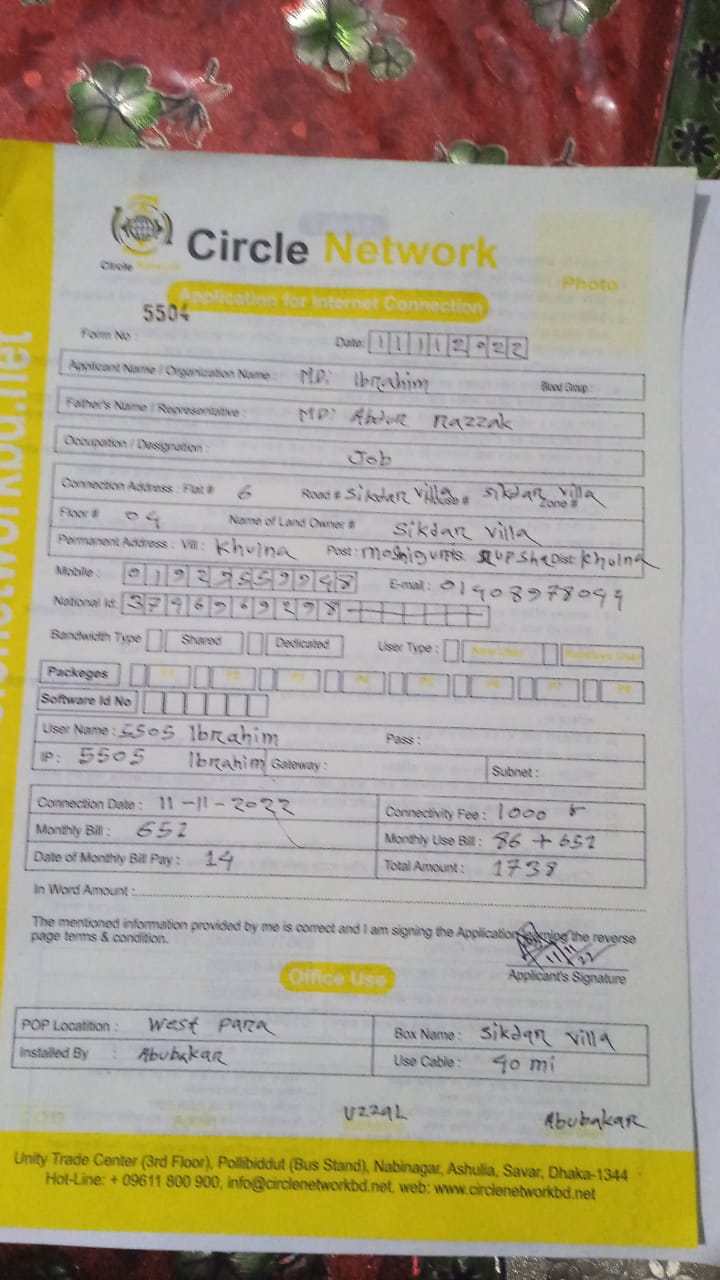 Circle Network
Circle Network
Photo
Application for Internet Connection
5504
Form No :
Date: 11112022
Applicant Name / Organization Name : MD: Ibrahim Blood Group :
Father's Name / Representative : MD: Abdur Razzak
Occupation / Designation : Job
Connection Address : Flat # 6 Road # Sikdar Villa House # Sikdar Villa Zone #
Floor # 04 Name of Land Owner # Sikdar Villa
Permanent Address : Vill : Khulna Post : P.S. Dist: Khulna
Mobile : E-mail :
National Id:
Bandwidth Type Shared Dedicated User Type : New User
Packeges P1 P2 P3 P4 P5 P6 P7 P8
Software Id No
User Name : 5505 Ibrahim Pass :
IP : 5505 Ibrahim Gateway : Subnet :
Connection Date : 11-11-2022 Connectivity Fee : 1000
Monthly Bill : 652 Monthly Use Bill : 86 + 652
Date of Monthly Bill Pay : 14 Total Amount : 1738
In Word Amount :
The mentioned information provided by me is correct and I am signing the Application the reverse
page terms & condition.
Applicant's Signature
Office Use
POP Locatition : West Para Box Name : Sikdar Villa
Installed By : Abubakar Use Cable : 90 mi
Uzzal Abubakar
Unity Trade Center (3rd Floor), Pollibiddut (Bus Stand), Nabinagar, Ashulia, Savar, Dhaka-1344
Hot-Line: + 09611 800 900, info@circlenetworkbd.net, web: www.circlenetworkbd.net